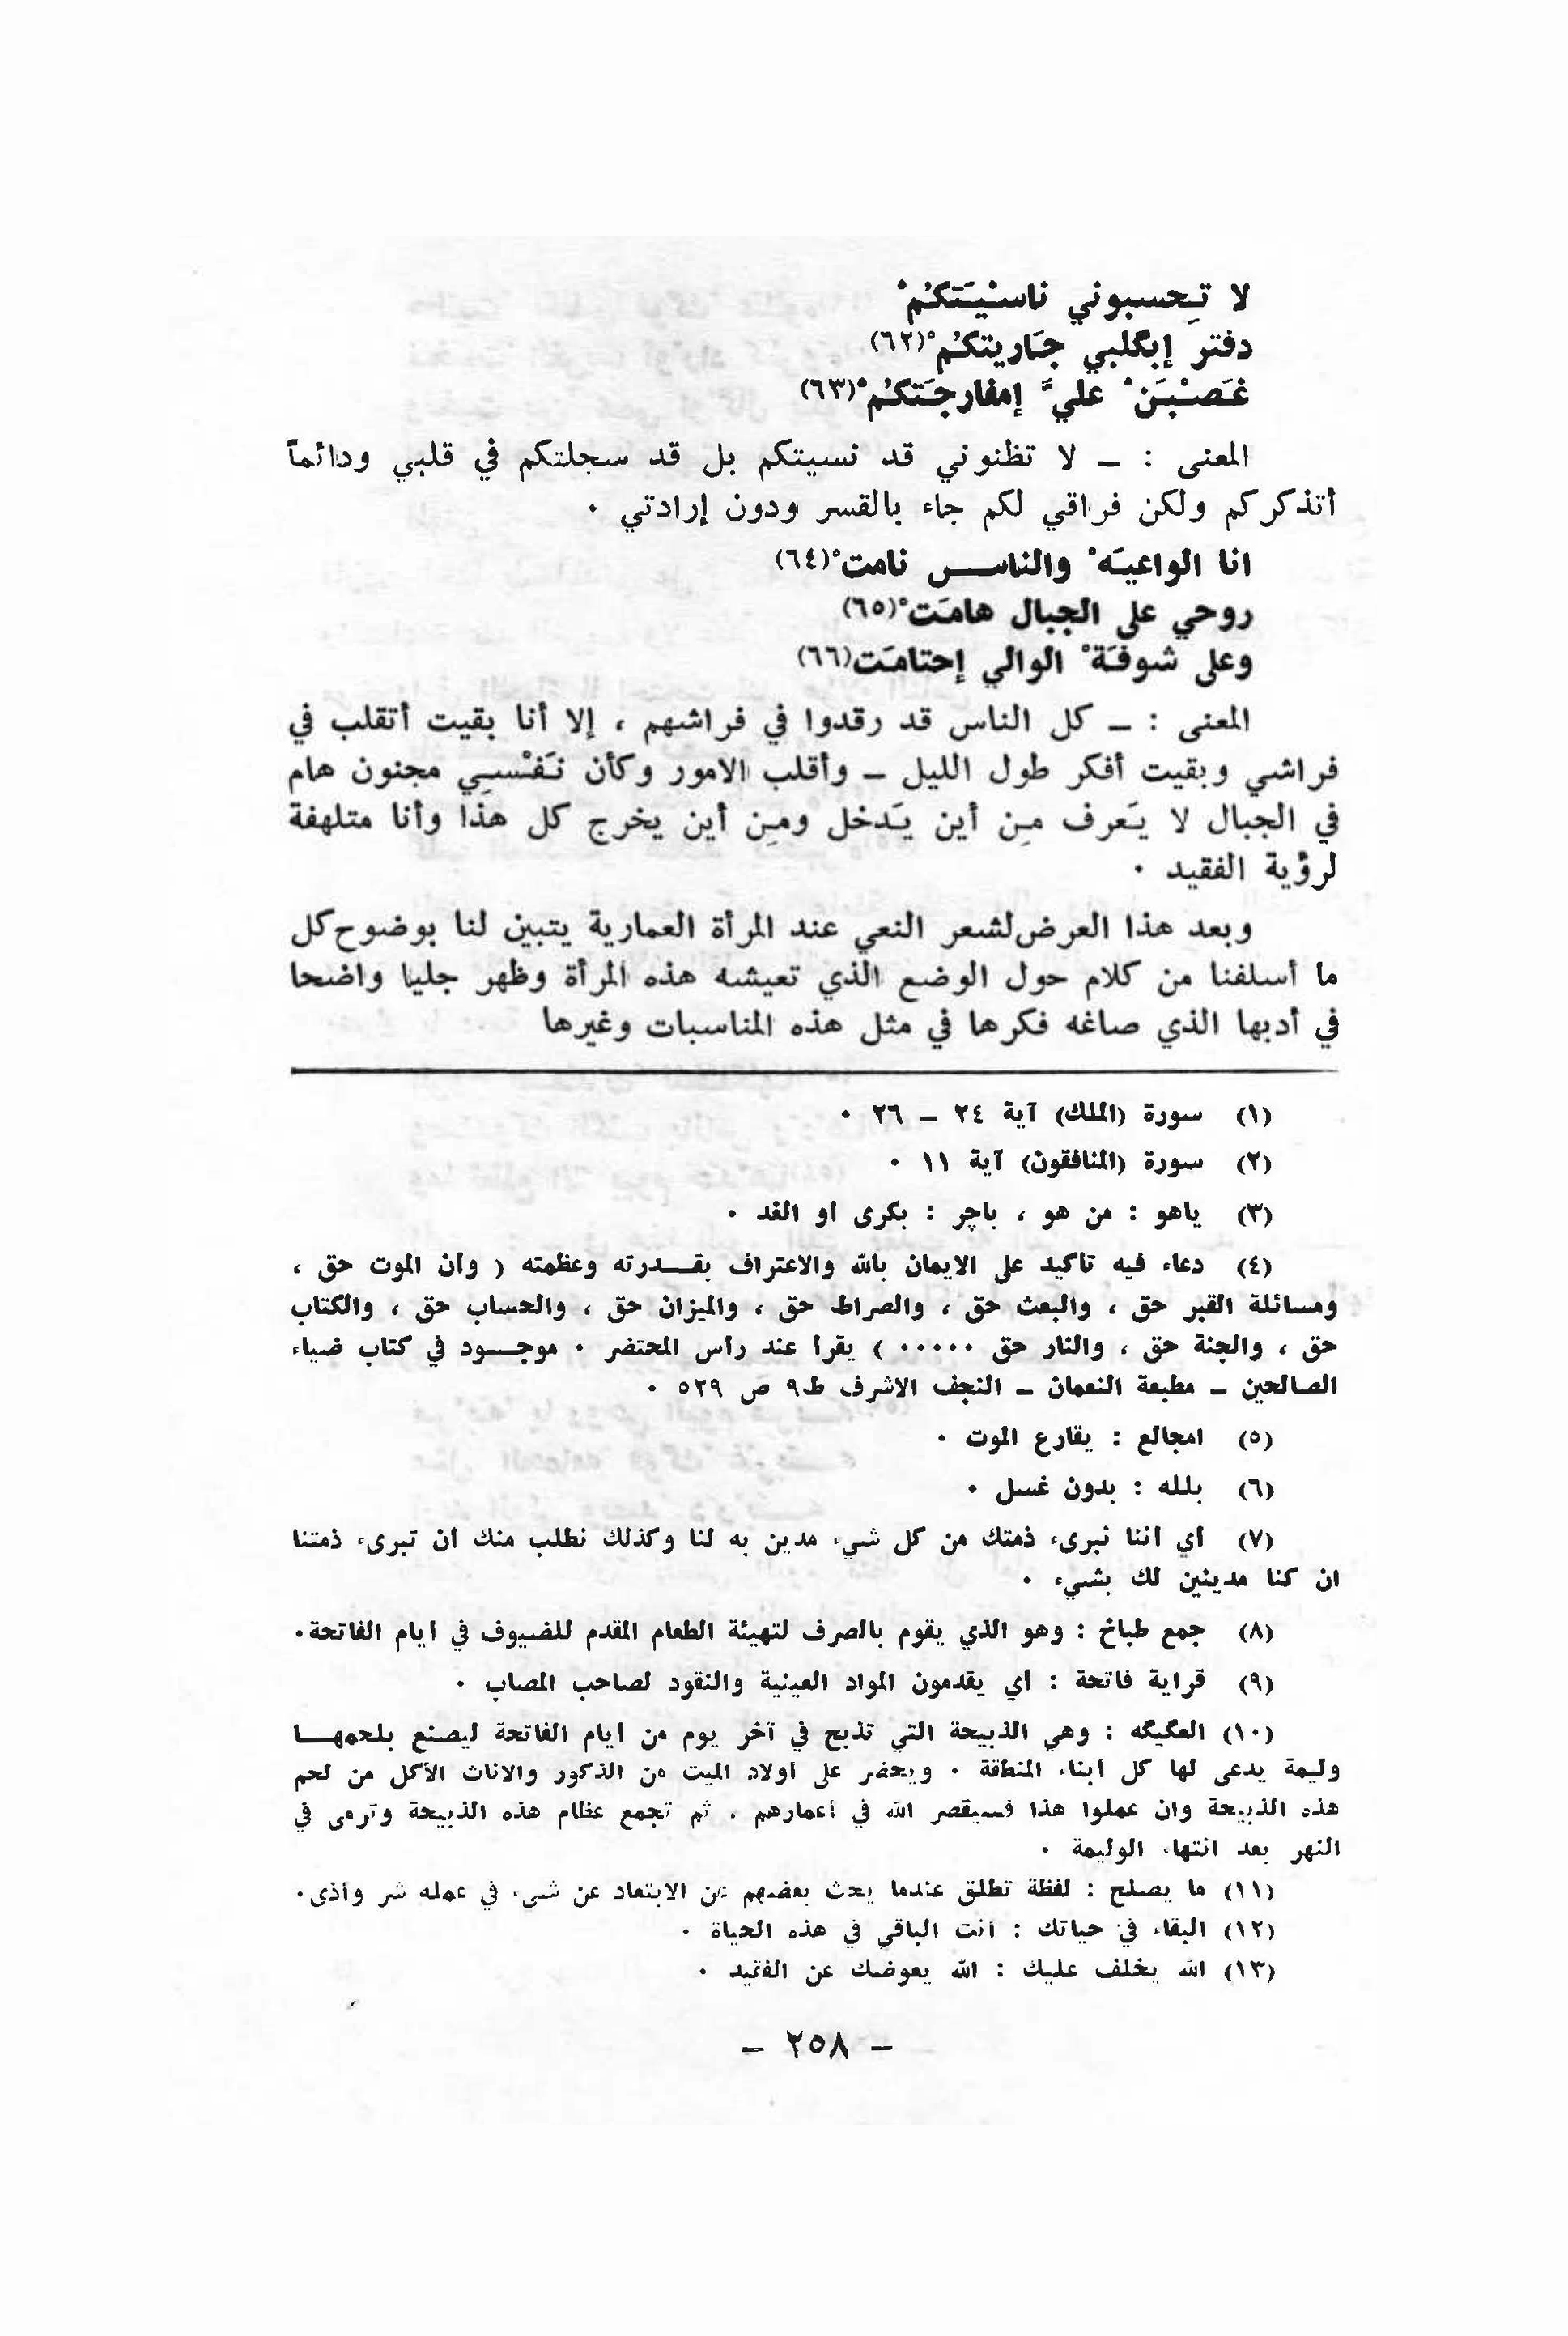 لا تِحسبوني ناسْيَتكُمْ
دفتر إبگلبي جَاريتكُمْ(٦٢)
غَصْبَنْ عليَّ إمفارجَتكُمْ(٦٣)
المعنى : ــ لا تظنوني قد نسيتكم بل قد سجلتكم في قلبي ودائماً
أتذكركم ولكن فراقي لكم جاء بالقسر ودون إرادتي ٠
انا الواعيَهْ والناس نامتْ(٦٤)
روحي على الجبال هامَتْ(٦٥)
وعلى شوفَةْ الوالي إحتامَت(٦٦)
المعنى : ــ كل الناس قد رقدوا في فراشهم ، إلا أنا بقيت أتقلب في
فراشي وبقيت أفكر طول الليل ــ وأقلب الامور وكأن نَفْسِي مجنون هام
في الجبال لا يَعرف مِن أين يَدخل ومِن أين يخرج كل هذا وأنا متلهفة
لرؤية الفقيد ٠
وبعد هذا العرض لشعر النعي عند المرأة العمارية يتبين لنا بوضوح كل
ما أسلفنا من كلام حول الوضع الذي تعيشه هذه المرأة وظهر جليا واضحا
في أدبها الذي صاغه فكرها في مثل هذه المناسبات وغيرها
(١) سورة (الملك) آية ٢٤ ــ ٢٦ ٠
(٢) سورة (المنافقون) آية ١١ ٠
(٣) ياهو : من هو ، باچر : بكرى او الغد ٠
(٤) دعاء فيه تاكيد على الايمان بالله والاعتراف بقـــدرته وعظمته ( وان الموت حق ،
ومسائلة القبر حق ، والبعث حق ، والصراط حق ، والميزان حق ، والحساب حق ، والكتاب
حق ، والجنة حق ، والنار حق ٠٠٠٠٠ ) يقرا عند راس المحتضر ٠ موجـــود في كتاب ضياء
الصالحين ــ مطبعة النعمان ــ النجف الاشرف ط٩ ص ٥٢٩ ٠
(٥) امجالع : يقارع الموت ٠
(٦) بلله : بدون غسل ٠
(٧) اي اننا نبرىء ذمتك من كل شيء مدين به لنا وكذلك نطلب منك ان تبرىء ذمتنا
ان كنا مدينين لك بشيء ٠
(٨) جمع طباخ : وهو الذي يقوم بالصرف لتهيئة الطعام المقدم للضيوف في ايام الفاتحة٠
(٩) قراية فاتحة : اي يقدمون المواد العينية والنقود لصاحب المصاب ٠
(١٠) العگيگه : وهي الذبيحة التي تذبح في آخر يوم من ايام الفاتحة ليصنع بلحمهـــا
وليمة يدعى لها كل ابناء المنطقة ٠ ويحضر على اولاد الميت من الذكور والاناث الأكل من لحم
هذه الذبيحة وان عملوا هذا فسيقصر الله في أعمارهم ٠ ثم تجمع عظام هذه الذبيحة وترمى في
النهر بعد انتهاء الوليمة ٠
(١١) ما يصلح : لفظة تطلق عندما يحث بعضهم عن الابتعاد عن شيء في عمله شر وأذى٠
(١٢) البقاء في حياتك : انت الباقي في هذه الحياة ٠
(١٣) الله يخلف عليك : الله يعوضك عن الفقيد ٠
ــ ٢٥٨ ــ